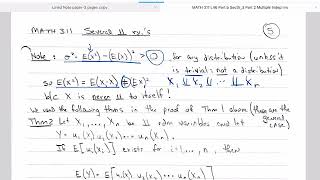 Lined Note paper-3 pages copy
MATH 311 L16 Part a Sect5_3 Part 2 Multiple Indep rvs
MATH 311 Several ⫫ rv.'s 5
Note: σ² = E(X²) - (E(X))² > 0 for any distribution (unless it is trivial: not a distribution)
so E(X²) = E(X·X) E(X)² ⫫ X₁ ⫫ X₂ ⫫ ... ⫫ Xₙ
b/c X is never ⫫ to itself!
We used the following thms in the proof of Thm 1 above (these are the general case)
Thm 2: Let X₁, ..., Xₙ be ⫫ rdm variables and let
Y = u₁(X₁) u₂(X₂) ... uₙ(Xₙ)
If E[uᵢ(Xᵢ)] exists for i=1,...,n, then
E(Y) = E[u₁(X₁) u₂(X₂) ... uₙ(Xₙ)]